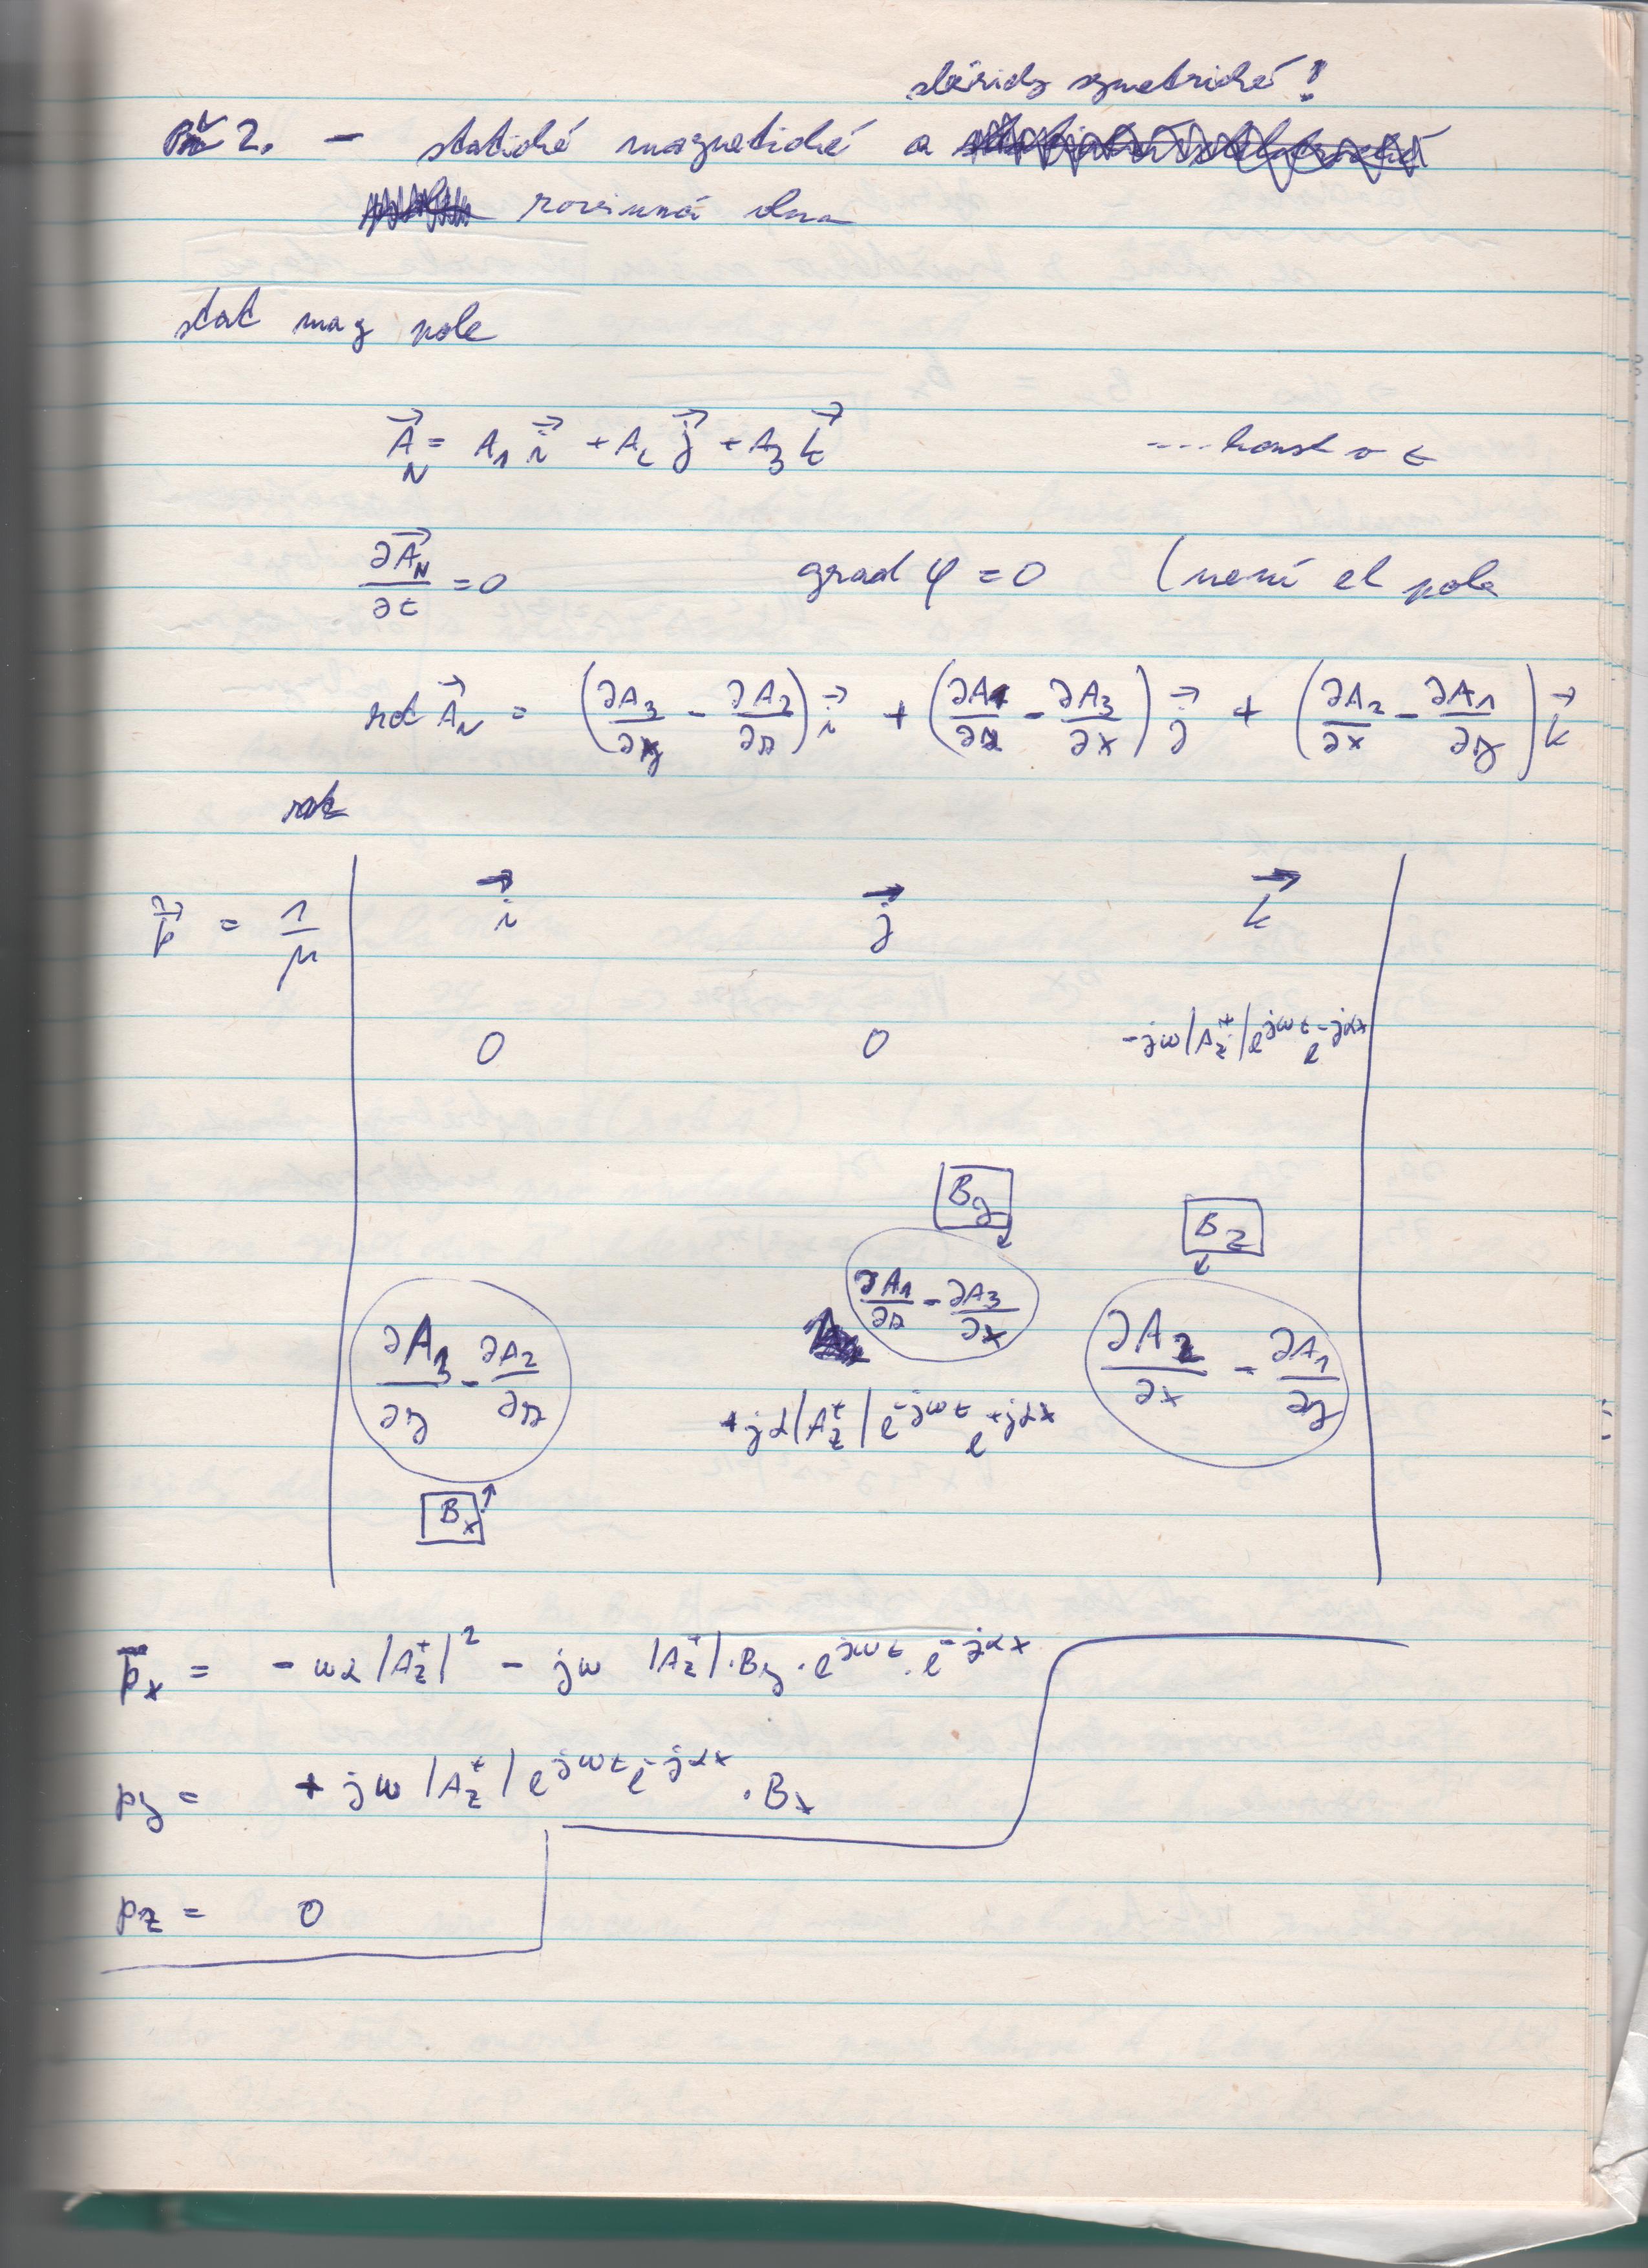 symetrické!
Př 2. – statické magnetické a
rovinná vlna
stat mag pole
A⃗_N = A₁ i⃗ + A₂ j⃗ + A₃ k⃗ .... konst v t
∂A⃗_N/∂t = 0 grad φ = 0 (není el pole
rot A⃗_N = (∂A₃/∂y − ∂A₂/∂z) i⃗ + (∂A₁/∂z − ∂A₃/∂x) j⃗ + (∂A₂/∂x − ∂A₁/∂y) k⃗
p⃗ = 1/μ | i⃗ j⃗ k⃗ |
0 0 −jω|A_z⁺|e^{jωt} e^{−jαx}
B_y B_z
∂A₃/∂y − ∂A₂/∂z ∂A₁/∂z − ∂A₃/∂x ∂A₂/∂x − ∂A₁/∂y
+jα|A_z⁺|e^{−jωt} e^{+jαx}
B_x
p̄_x = −ωα|A_z⁺|² − jω |A_z⁺|·B_y·e^{jωt}·e^{−jαx}
p_y = +jω|A_z⁺|e^{jωt}e^{−jαx}·B_x
p_z = 0